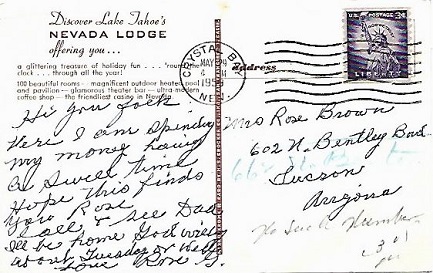 Discover Lake Tahoe's
NEVADA LODGE
offering you...
a glittering treasure of holiday fun . . . 'round the
clock . . . through all the year!
100 beautiful rooms - magnificent outdoor heated pool
and pavilion - glamorous theater bar - ultra-modern
coffee shop - the friendliest casino in Nevada.
Hi you folk
Here I am spending
my money having
a swell time
Hope this finds
you Rose
Call & see Dad
I'll be home God will
about Tuesday or
Love Rose
Address
CRYSTAL BAY
MAY
195
NEV.
U.S. POSTAGE 3¢
LIBERTY
Mrs Rose Brown
602 N. Bentley
Tucson
Arizona
No Such Number